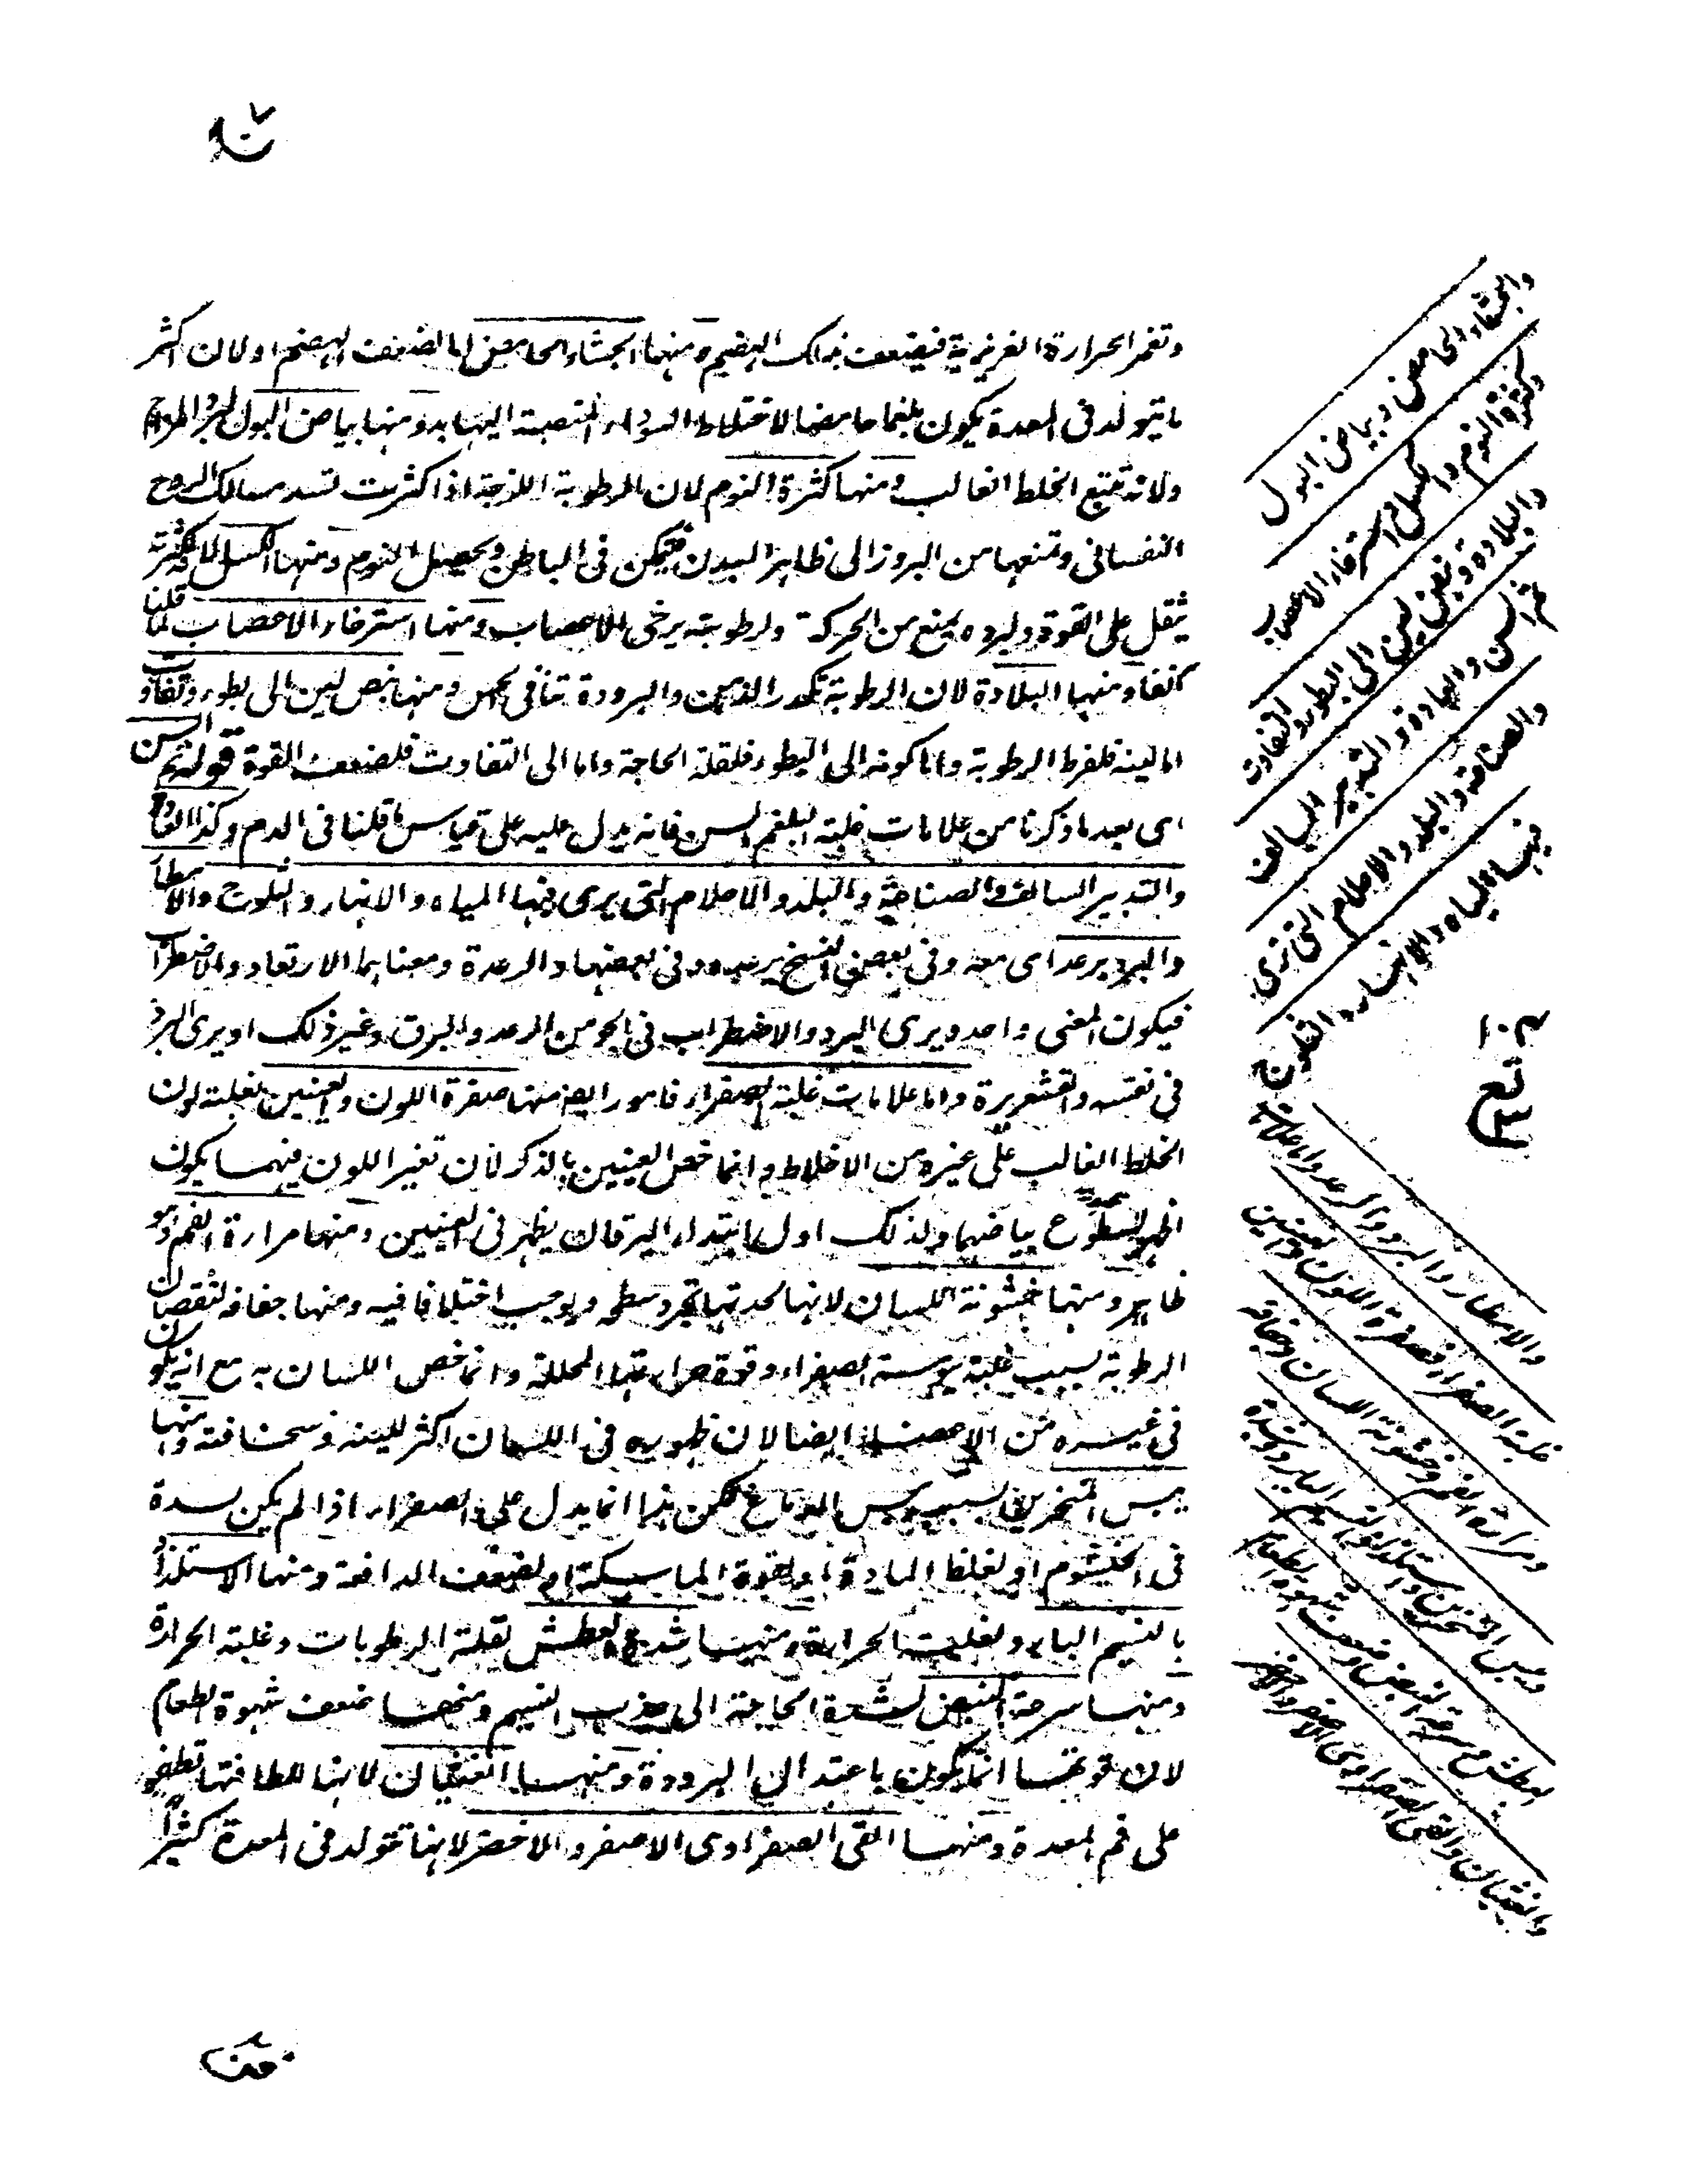 وتغمر الحرارة الغريزية فيضعف بذلك الهضم ومنها الجشاء الحامض اما لضعف الهضم او لان اكثر
ما يتولد فى المعدة يكون بلغما حامضا لاختلاط السوداء المنصبة اليها به ومنها بياض البول لبرد المزاج
ولانه تتبع الخلط الغالب ومنها كثرة النوم لان الرطوبة اللزجة اذا كثرت تسد مسالك الروح
النفسانى وتمنعها من البروز الى ظاهر البدن فيمكن فى الباطن ويحصل النوم ومنها الكسل لانه لكثرته
يثقل على القوة ولبرده يمنع من الحركة ولرطوبته يرخى الاعصاب ومنها استرخاء الاعصاب لما قلنا
آنفا ومنها البلادة لان الرطوبة تكدر الذهن والبرودة تنافى الحس ومنها نبض لين الى بطوء وتفاوت
اما لينه فلفرط الرطوبة واما كونه الى البطوء فلقلة الحاجة واما الى التفاوت فلضعف القوة قوله ثم السن
اى بعد ما ذكرنا من علامات غلبة البلغم السن فانه يدل عليه على قياس ما قلنا فى الدم وكذا العادة
والتدبير السالف والصناعة والبلد والاحلام التى يرى فيها المياه والانهار والثلوج والامطار
والبرد برعد اى معه وفى بعض النسخ يرعد وفى بعضها والرعدة ومعناهما الارتعاد والاضطراب
فيكون المعنى واحد ويرى البرد والاضطراب فى الجو من الرعد والبرق وغير ذلك او يرى البرد
فى نفسه والقشعريرة واما علامات غلبة الصفراء فامور ايضا منها صفرة اللون والعينين لغلبة لون
الخلط الغالب على غيره من الاخلاط وانما خص العينين بالذكر لان تغير اللون فيهما يكون
اظهر لسطوع بياضهما ولذلك اول ما يبتداء اليرقان يظهر فى العينين ومنها مرارة الفم وهو
ظاهر ومنها خشونة اللسان لانها لحدتها تجرد سطحه ويوجب اختلافا فيه ومنها جفافه لنقصان
الرطوبة بسبب غلبة يبوسة الصفراء وقوة حرارتها المحللة وانما خص اللسان به مع انه يكون
فى غيره من الاعضاء ايضا لان ظهوره فى اللسان اكثر للينه وسخافته ومنها
يبس المنخرين بسبب يبس الدماغ لكن هذا انما يدل على الصفراء اذا لم يكن لسدة
فى الخيشوم او لغلظ المادة او لقوة الماسكة او لضعف الدافعة ومنها الاستلذاذ
بالنسيم البارد لغلبة الحرارة ومنها شدة العطش لقلة الرطوبات وغلبة الحرارة
ومنها سرعة النبض لشدة الحاجة الى جذب النسيم ومنها ضعف شهوة الطعام
لان قوتها انما يكون باعتدال البرودة ومنها الغثيان لانها للطافتها تطفو
على فم المعدة ومنها القى الصفراوى الاصفر والاخضر لانها تتولد فى المعدة كثيرا
والجشاء الحامض وبياض البول
وكثرة النوم والكسل واسترخاء الاعصاب
والبلادة ونبض لين الى البطوء والتفاوت
ثم السن والعادة والتدبير السالف
والصناعة والبلد والاحلام التى ترى
فيها المياه والانهار والثلوج
والامطار والبرد والرعد واما علامات
غلبة الصفراء فصفرة اللون والعينين
ومرارة الفم وخشونة اللسان وجفافه
ويبس المنخرين واستلذاذ النسيم البارد وشدة
العطش وسرعة النبض وضعف شهوة الطعام
والغثيان والقى الصفراوى الاصفر والاخضر